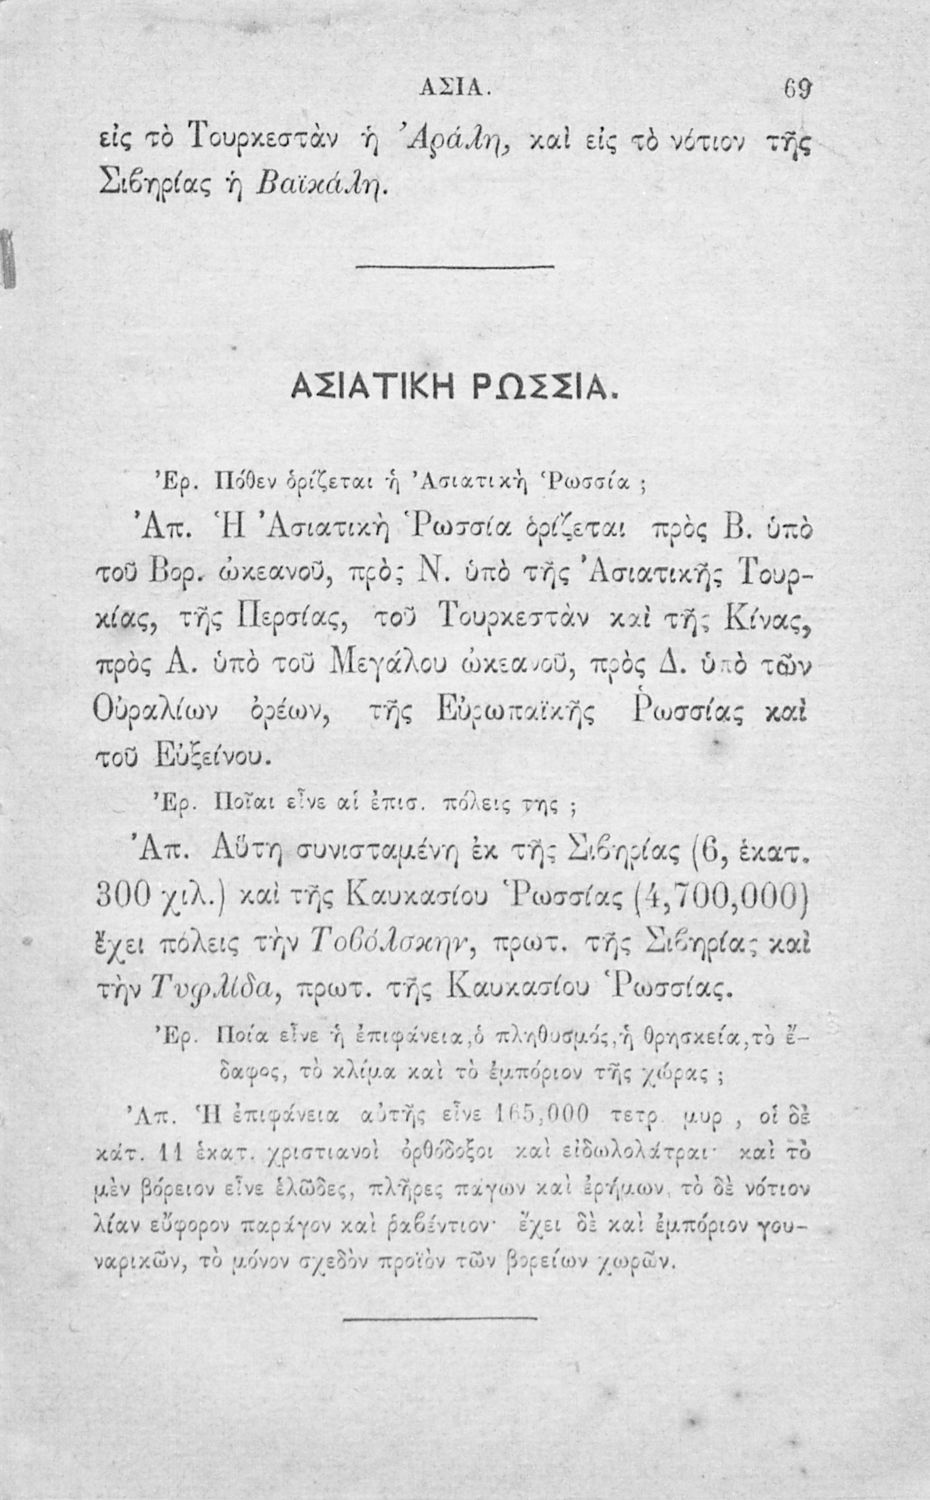 ΑΣΙΑ. 69
εἰς τὸ Τουρκεστὰν ἡ Ἀράλη, καὶ εἰς τὸ νότιον τῆς
Σιβηρίας ἡ Βαϊκάλη.
ΑΣΙΑΤΙΚΗ ΡΩΣΣΙΑ.
Ἐρ. Πόθεν ὁρίζεται ἡ Ἀσιατικὴ Ῥωσσία ;
Ἀπ. Ἡ Ἀσιατικὴ Ῥωσσία ὁρίζεται πρὸς Β. ὑπὸ
τοῦ Βορ. ὠκεανοῦ, πρὸς Ν. ὑπὸ τῆς Ἀσιατικῆς Τουρ-
κίας, τῆς Περσίας, τοῦ Τουρκεστὰν καὶ τῆς Κίνας,
πρὸς Α. ὑπὸ τοῦ Μεγάλου ὠκεανοῦ, πρὸς Δ. ὑπὸ τῶν
Οὐραλίων ὀρέων, τῆς Εὐρωπαϊκῆς Ῥωσσίας καὶ
τοῦ Εὐξείνου.
Ἐρ. Ποῖαι εἶνε αἱ ἐπισ. πόλεις της ;
Ἀπ. Αὕτη συνισταμένη ἐκ τῆς Σιβηρίας (6, ἑκατ.
300 χιλ.) καὶ τῆς Καυκασίου Ῥωσσίας (4,700,000)
ἔχει πόλεις τὴν Τοβόλσκην, πρωτ. τῆς Σιβηρίας καὶ
τὴν Τυφλίδα, πρωτ. τῆς Καυκασίου Ῥωσσίας.
Ἐρ. Ποία εἶνε ἡ ἐπιφάνεια, ὁ πληθυσμός, ἡ θρησκεία, τὸ ἔ-
δαφος, τὸ κλίμα καὶ τὸ ἐμπόριον τῆς χώρας ;
Ἀπ. Ἡ ἐπιφάνεια αὐτῆς εἶνε 165,000 τετρ. μυρ , οἱ δὲ
κάτ. 11 ἑκατ. χριστιανοὶ ὀρθόδοξοι καὶ εἰδωλολάτραι· καὶ τὸ
μὲν βόρειον εἶνε ἑλῶδες, πλῆρες πάγων καὶ ἐρήμων, τὸ δὲ νότιον
λίαν εὔφορον παράγον καὶ ῥαβέντιον· ἔχει δὲ καὶ ἐμπόριον γου-
ναρικῶν, τὸ μόνον σχεδὸν προϊὸν τῶν βορείων χωρῶν.